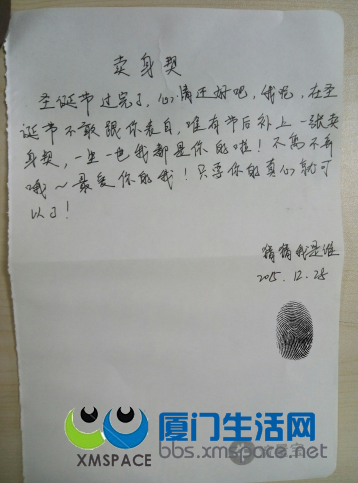 卖身契
圣诞节过完了，心情还好吧，我吧，在圣
诞节不敢跟你表白，唯有节后补上一张卖
身契，一生一世我都是你的啦！不离不弃
哦～最爱你的我！只要你的真心就可
以了！
猜猜我是谁
2015.12.28
厦门生活网
XMSPACE
bbs.xmspace.net